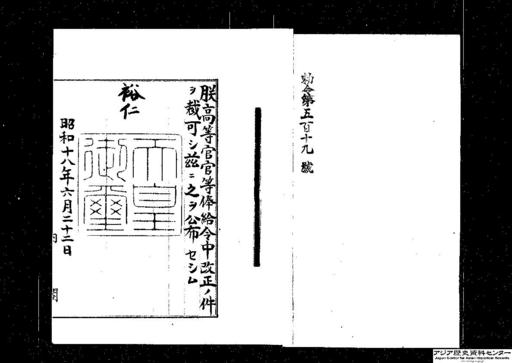 勅令第五百十九號
朕高等官官等俸給令中改正ノ件
ヲ裁可シ茲ニ之ヲ公布セシム
裕仁
天皇御璽
昭和十八年六月二十二日
アジア歴史資料センター
Japan Center for Asian Historical Records